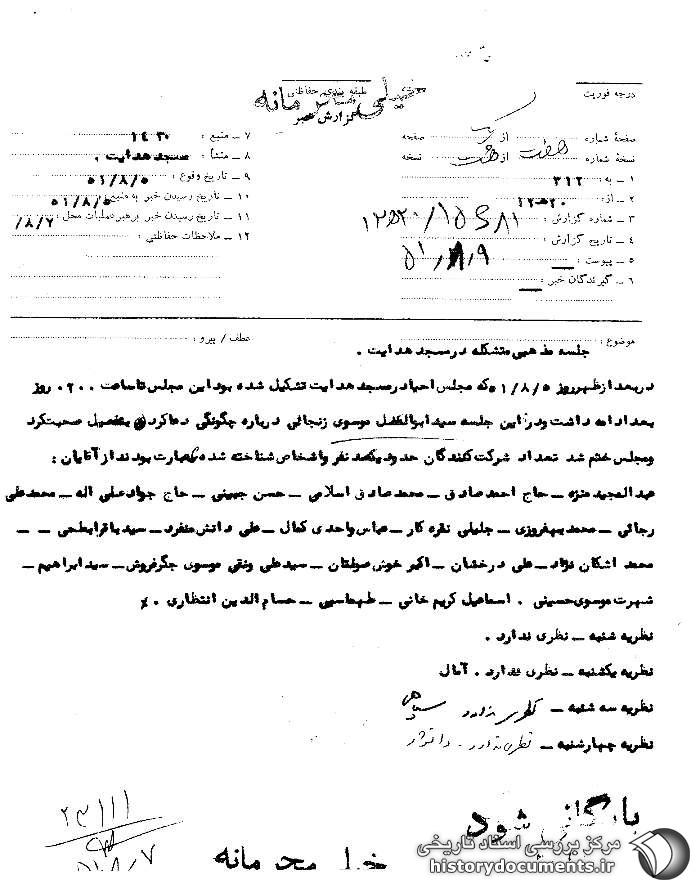 درجه فوریت
طبقه بندی حفاظتی
خیلی محرمانه
گزارش خبر
صفحهٔ شماره از یک صفحه
نسخهٔ شماره هفت از هشت نسخه
۱ ـ به : ۳۱۲
۲ ـ از : ۲۰ﻫ۱۲
۳ ـ شماره گزارش :
۴ ـ تاریخ گزارش : ۵۱/۸/۹
۵ ـ پیوست :
۶ ـ گیرندگان خبر :
۷ ـ منبع : ۱۴۳۰
۸ ـ منشأ : مسجد هدایت .
۹ ـ تاریخ وقوع : ۵۱/۸/۵
۱۰ ـ تاریخ رسیدن خبر به منبع : ۵۱/۸/۵
۱۱ ـ تاریخ رسیدن خبر به رهبر عملیات محل : ۸/۷/
۱۲ ـ ملاحظات حفاظتی :
موضوع :
عطف / پیرو :
جلسه مذهبی متشکله در مسجد هدایت .
در بعد از ظهر روز ۵۱/۸/۵ که مجلس احیا در مسجد هدایت تشکیل شده بود این مجلس تا ساعت ۰۲۰۰ روز
بعد ادامه داشت و در این جلسه سید ابوالفضل موسوی زنجانی درباره چگونگی دعا کردن بتفصیل صحبت کرد
و مجلس ختم شد تعداد شرکت کنندگان حدود یکصد نفر و اشخاص شناخته شده عبارت بودند از آقایان :
عبدالمجید منزه ـ حاج احمد صادق ـ محمد صادق اسلامی ـ حسن جبینی ـ حاج جواد علی اله ـ محمد علی
رجائی ـ محمد بهفروزی ـ جلیلی نقره کار ـ عباس واحدی کمال ـ علی دانش منفرد ـ سید باقر ابطحی ـ ـ
محمد اشکان نژاد ـ علی درخشان ـ اکبر خوش صولتان ـ سید علی ونقی موسوی جگرفروش ـ سید ابراهیم ـ
شهرت موسوی حسینی . اسماعیل کریم خانی ـ طهماسبی ـ حسام الدین انتظاری .
نظریه شنبه ـ نظری ندارد .
نظریه یکشنبه ـ نظری ندارد . آمال
نظریه سه شنبه ـ نظری ندارد
نظریه چهارشنبه ـ نظری ندارد .
بایگانی شود
۲۳۱۱۱
۵۱/۸/۷
خیلی محرمانه
مرکز بررسی اسناد تاریخی
historydocuments.ir